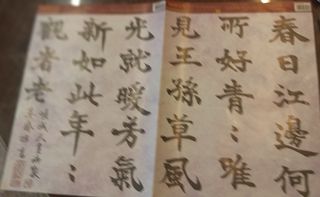 春日江邊何
所好青⺀唯
見王孫草風
光就暖芳氣
新如此年⺀
觀者老